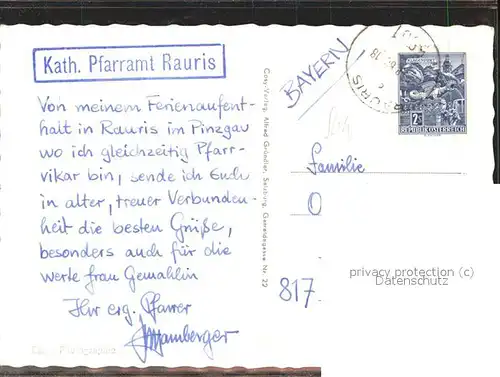 Kath. Pfarramt Rauris
Von meinem Ferienaufent-
halt in Rauris im Pinzgau
wo ich gleichzeitig Pfarr-
vikar bin, sende ich Euch
in alter, treuer Verbunden-
heit die besten Grüße,
besonders auch für die
werte Frau Gemahlin
Ihr erg. Pfarrer
Cosy-Verlag Alfred Gründler, Salzburg, Gstettengasse Nr. 29
BAYERN
RAURIS
2 S
REPUBLIK ÖSTERREICH
Familie
O
817
privacy protection (c)
Datenschutz